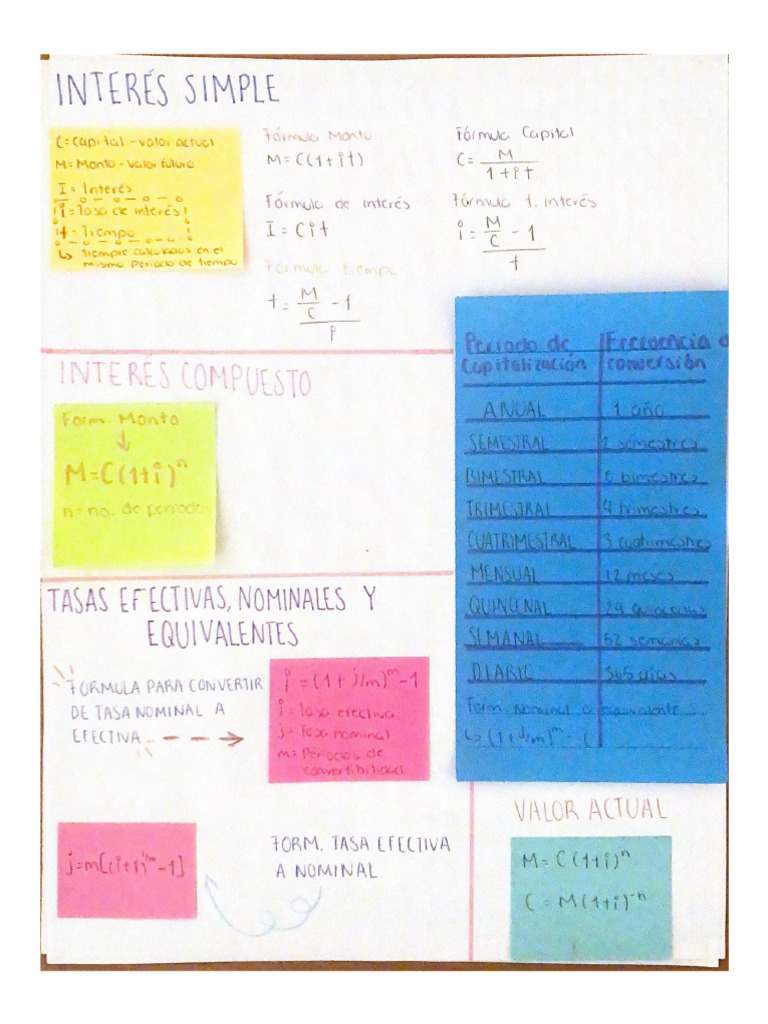 INTERÉS SIMPLE
C = Capital - valor actual
M = Monto - Valor futuro
I = Interés
i = Tasa de interés
t = Tiempo
↳ Siempre calculados en el
mismo periodo de tiempo
Fórmula Monto
M = C(1+it)
Fórmula de interés
I = Cit
Fórmula tiempo
t = M/C - 1
i
Fórmula Capital
C = M
1+it
Fórmula t. interés
i = M/C - 1
t
INTERÉS COMPUESTO
Form. Monto
↓
M=C(1+i)ⁿ
n = no. de periodos
Periodo de | Frecuencia
Capitalización | conversión
ANUAL | 1 año
SEMESTRAL | 2 semestres
BIMESTRAL | 6 bimestres
TRIMESTRAL | 4 trimestres
CUATRIMESTRAL | 3 cuatrimestres
MENSUAL | 12 meses
QUINCENAL | 24 quincenas
SEMANAL | 52 semanas
DIARIO | 365 días
Form. nominal a equivalente
↳ (1+j/m)ᵐ - (
TASAS EFECTIVAS, NOMINALES Y
EQUIVALENTES
FORMULA PARA CONVERTIR
DE TASA NOMINAL A
EFECTIVA - - - →
i = (1 + j/m)ᵐ-1
i = Tasa efectiva
j = Tasa nominal
m = Periodos de
convertibilidad
j=m[(i+1)^1/m -1]
FORM. TASA EFECTIVA
A NOMINAL
VALOR ACTUAL
M = C(1+i)ⁿ
C = M(1+i)⁻ⁿ